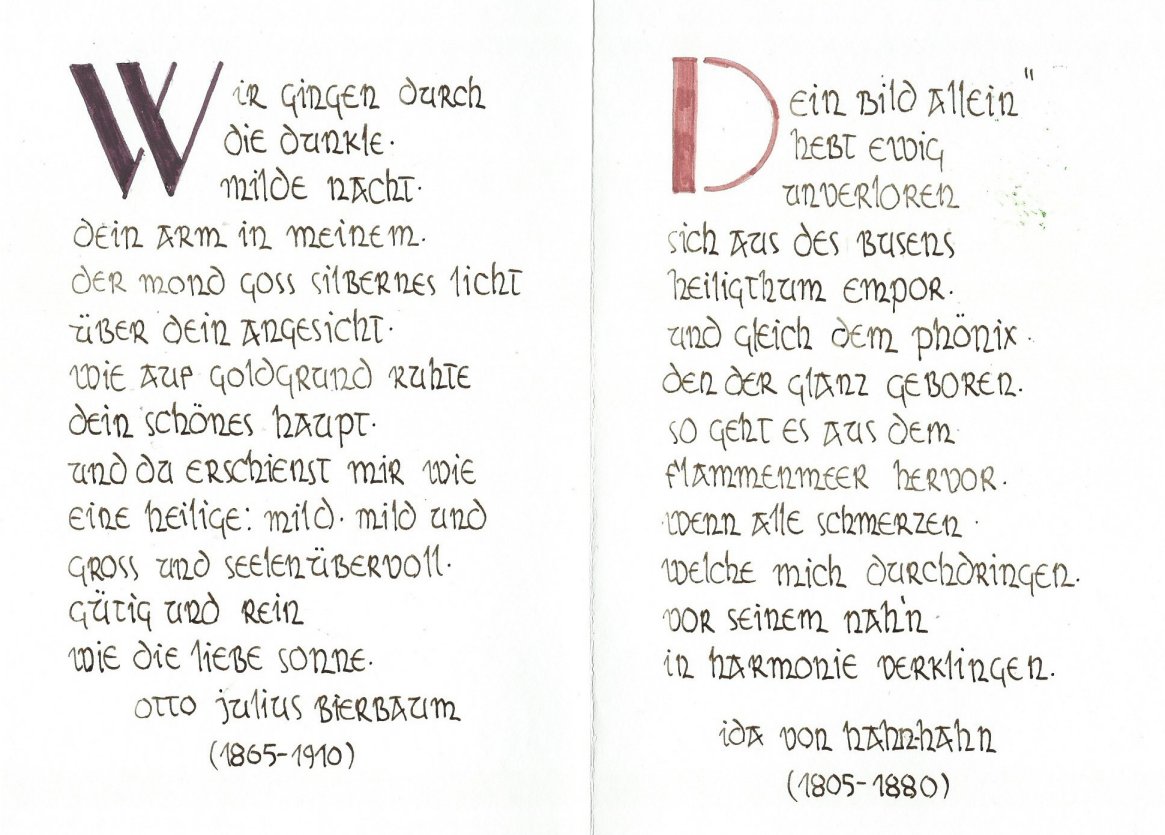 Wir gingen durch
die dunkle.
milde nacht.
dein arm in meinem.
der mond goss silbernes licht
über dein angesicht.
wie auf goldgrund ruhte
dein schönes haupt.
und du erschienst mir wie
eine heilige: mild. mild und
gross und seelenübervoll.
gütig und rein
wie die liebe sonne.
otto julius bierbaum
(1865-1910)
Dein bild allein"
hebt ewig
unverloren
sich aus des busens
heiligthum empor.
und gleich dem phönix.
den der glanz geboren.
so geht es aus dem
flammenmeer hervor.
wenn alle schmerzen.
welche mich durchdringen.
vor seinem nah'n.
in harmonie verklingen.
ida von hahn-hahn
(1805-1880)